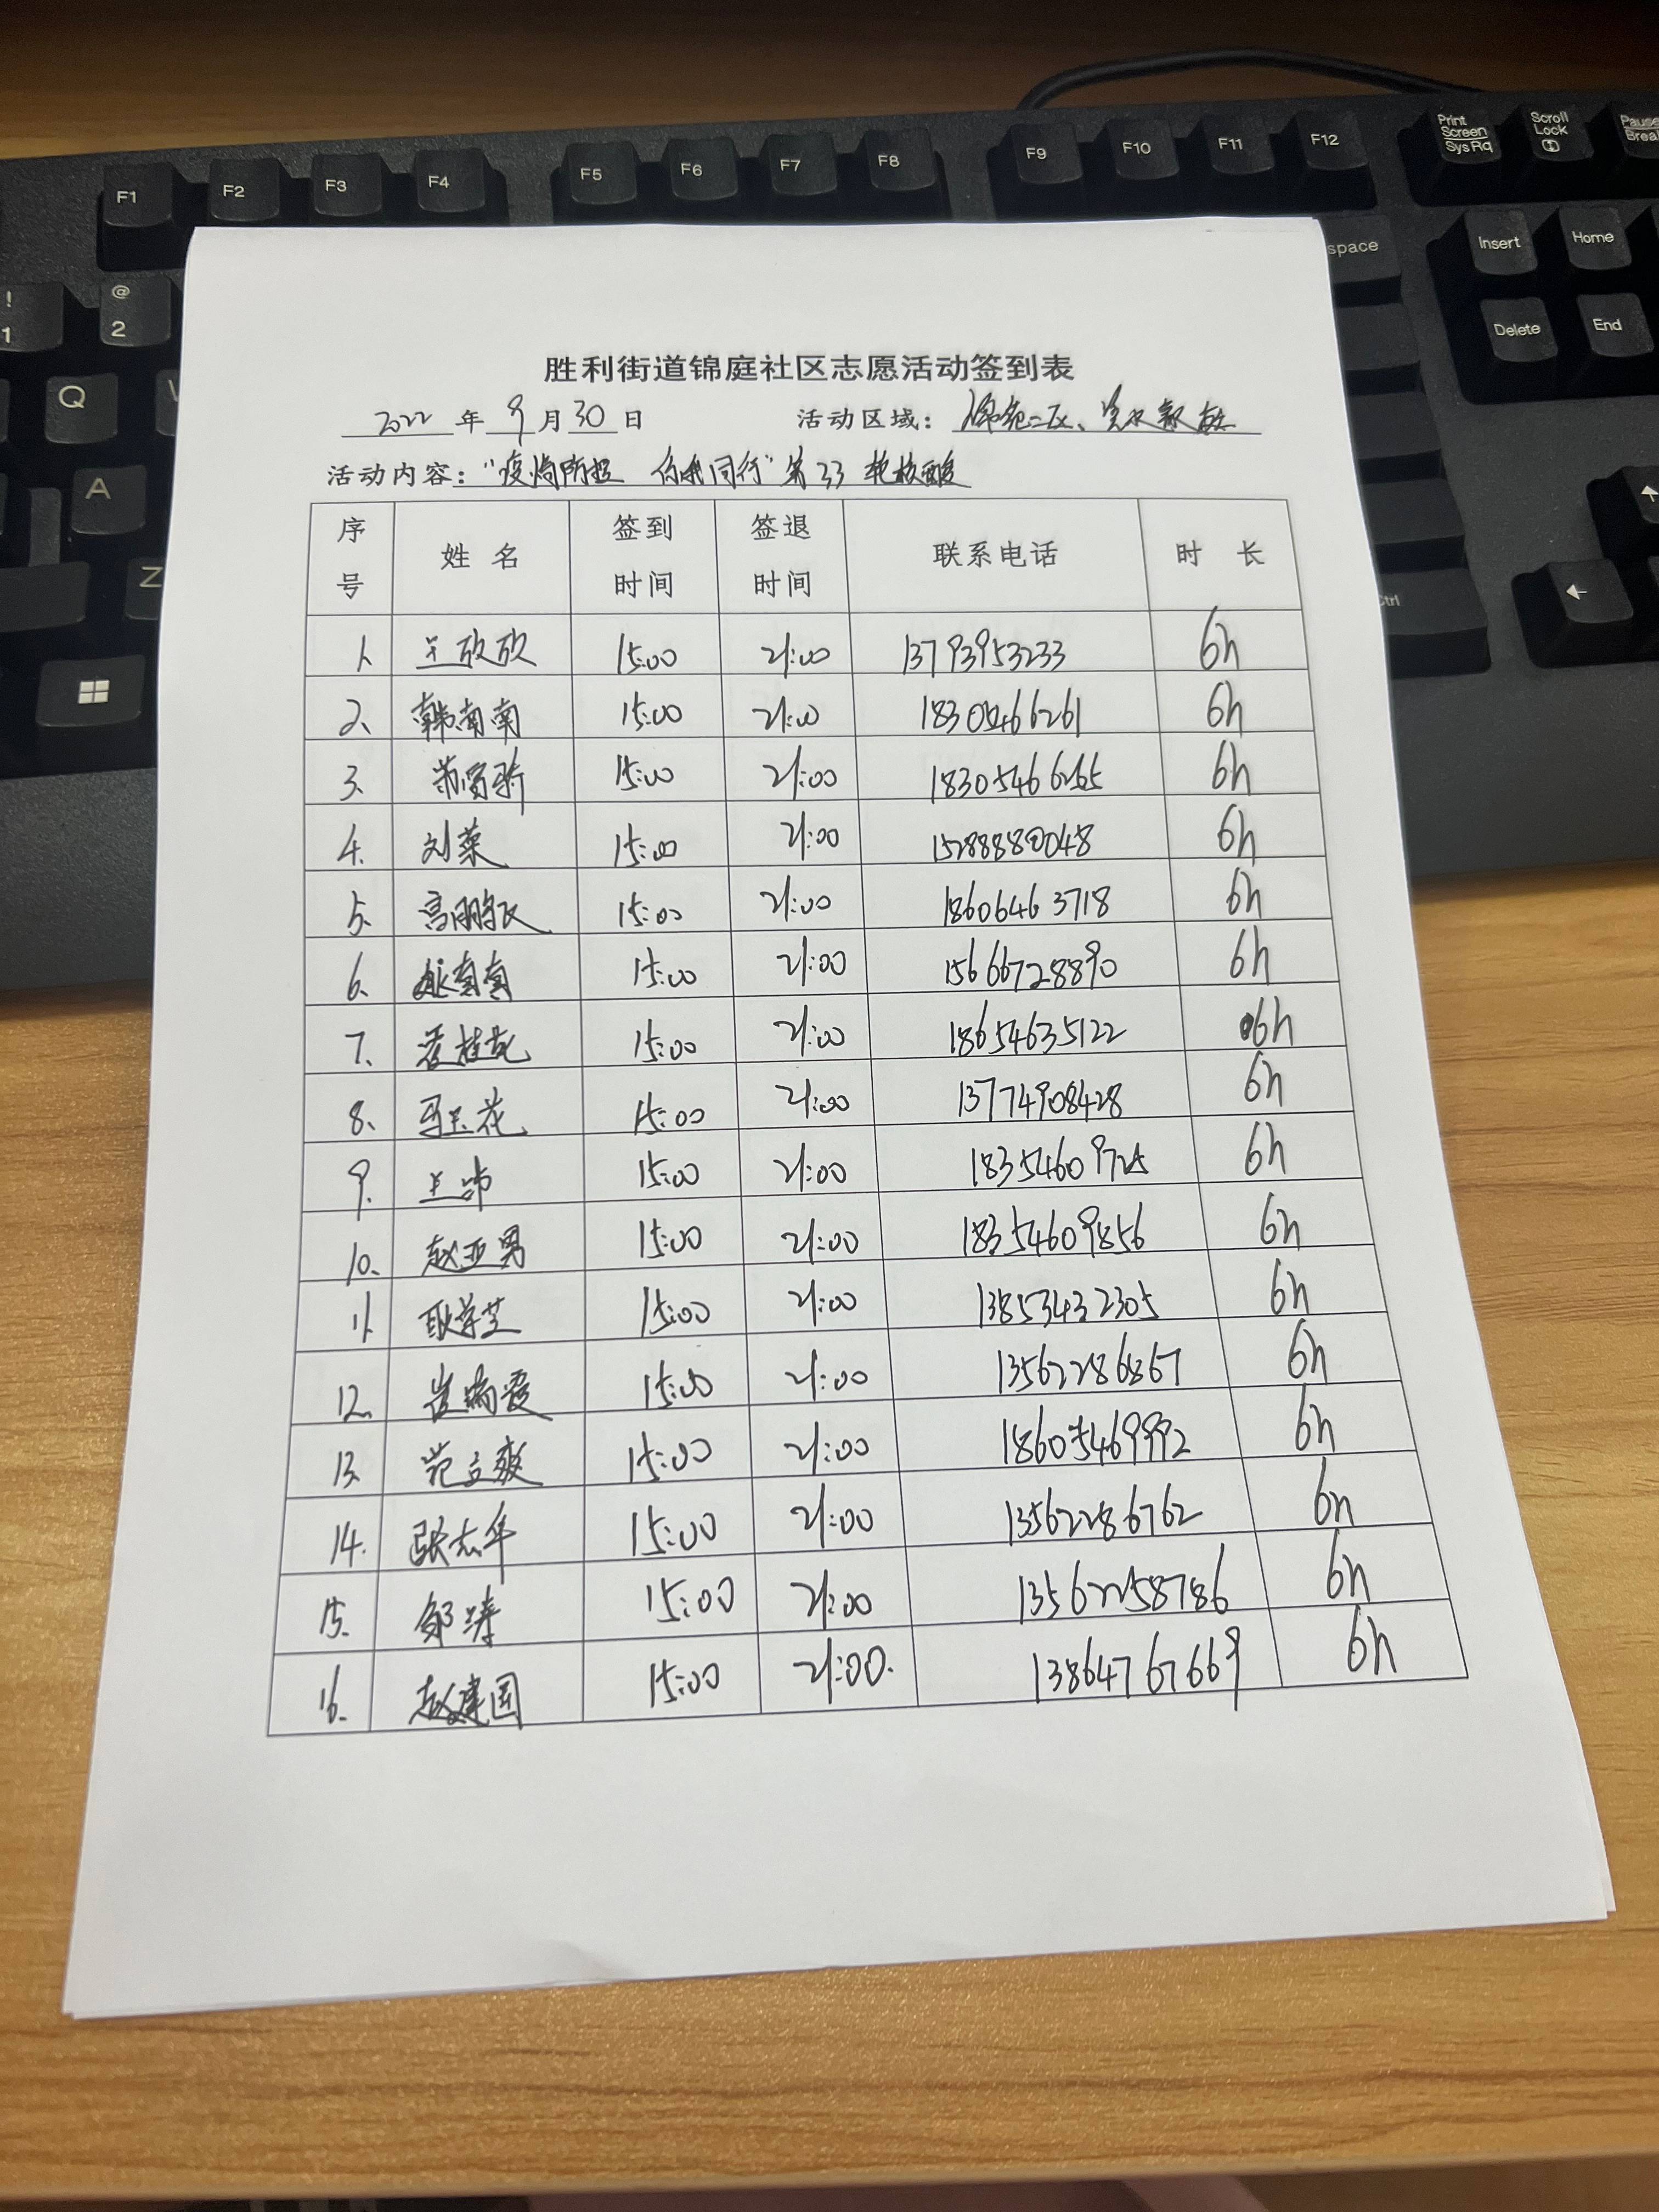 F1 F2 F3 F4 F5 F6 F7 F8 F9 F10 F11 F12 Print Screen SysRq Scroll Lock Pause
! 1 @ 2 space Insert Home
Q Delete End
A
Z
胜利街道锦庭社区志愿活动签到表
2022 年 9 月 30 日 活动区域: 锦苑二区、
活动内容: "疫情防控 你我同行" 第33轮核酸
序号 姓名 签到时间 签退时间 联系电话 时长
1. 王欣欣 15:00 21:00 13793953233 6h
2. 韩南南 15:00 21:00 18305466261 6h
3. 15:00 21:00 18305466265 6h
4. 刘菜 15:00 21:00 15288880048 6h
5. 高丽 15:00 21:00 18606463718 6h
6. 15:00 21:00 15666728890 6h
7. 15:00 21:00 18654635122 6h
8. 马玉花 15:00 21:00 13774908428 6h
9. 王 15:00 21:00 18354609725 6h
10. 赵亚男 15:00 21:00 18354609856 6h
11. 耿学芝 15:00 21:00 13853432305 6h
12. 崔瑞爱 15:00 21:00 13562286867 6h
13. 范立爽 15:00 21:00 18605469992 6h
14. 张志华 15:00 21:00 13562286762 6h
15. 邹涛 15:00 21:00 13562258786 6h
16. 赵建国 15:00 21:00. 13864767669 6h